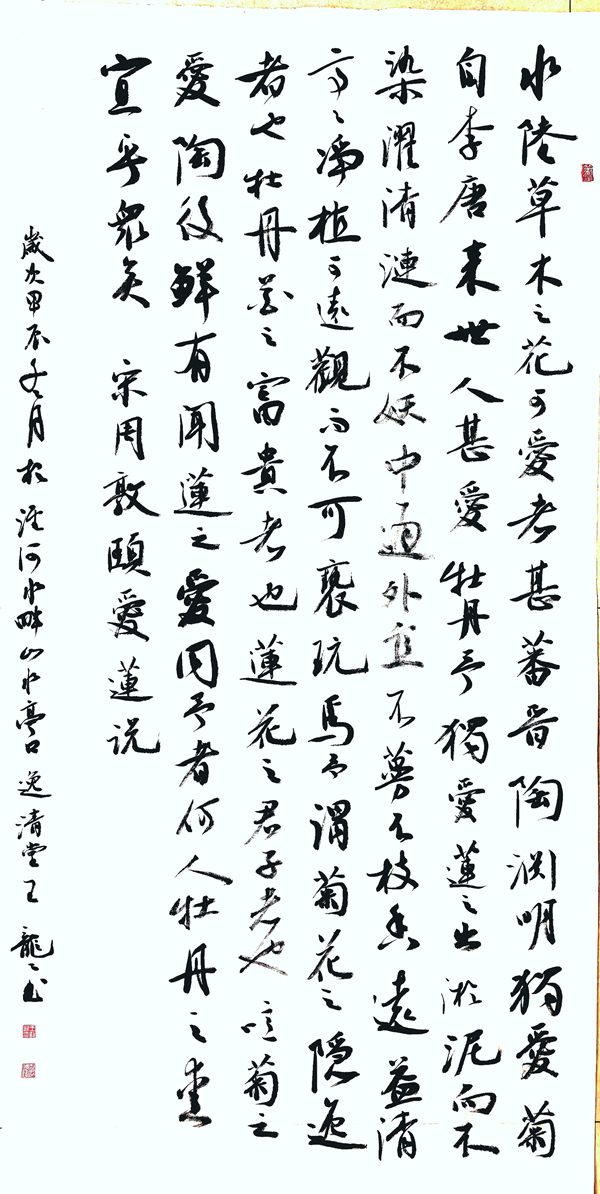 水陸草木之花可愛者甚蕃晋陶渊明獨愛菊
自李唐来世人甚愛牡丹予獨愛蓮之出淤泥而不
染濯清漣而不妖中通外直不蔓不枝香遠益清
亭々净植可遠觀而不可褻玩焉予謂菊花之隱逸
者也牡丹花之富貴者也蓮花之君子者也噫菊之
愛陶後鮮有聞蓮之愛同予者何人牡丹之愛
宜乎衆矣 宋周敦頤愛蓮说
歲次甲辰冬月於淮河水畔山水亭口逸清堂王龍书